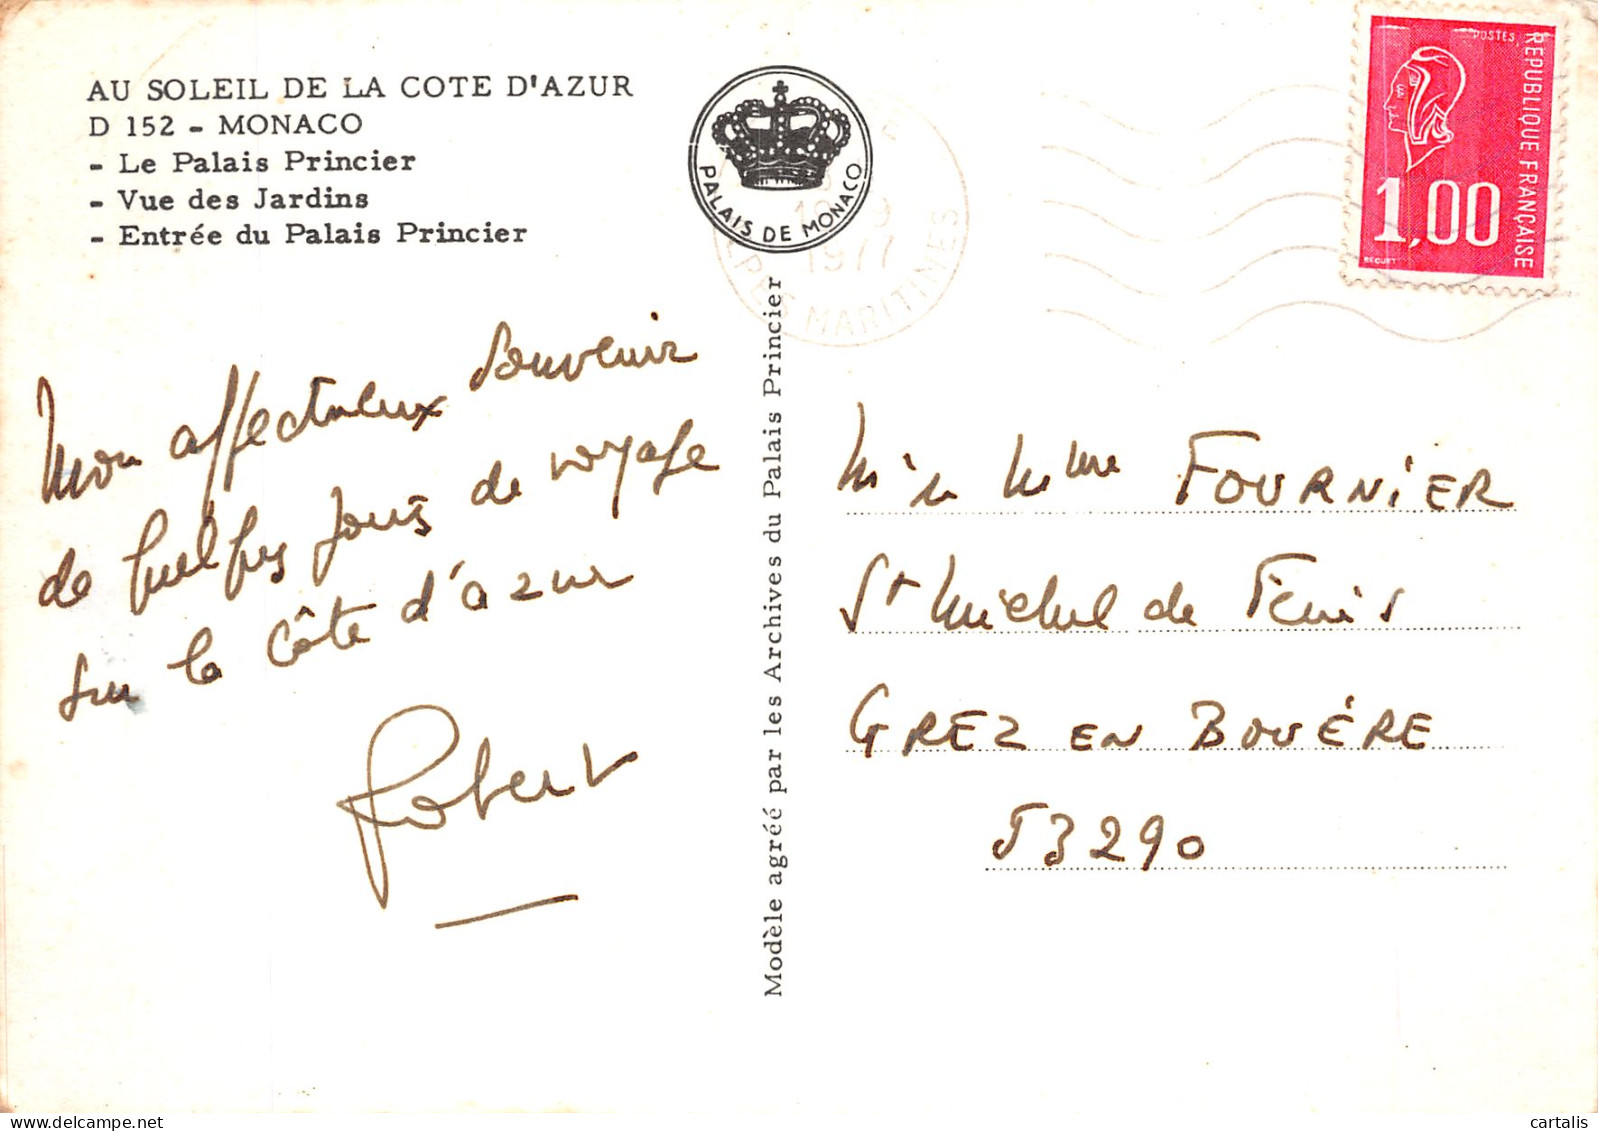 AU SOLEIL DE LA COTE D'AZUR
D 152 - MONACO
- Le Palais Princier
- Vue des Jardins
- Entrée du Palais Princier
PALAIS DE MONACO
1977
ALPES MARITIMES
POSTES
RÉPUBLIQUE FRANÇAISE
1,00
BEQUET
Mon affectueux souvenir
de quelques jours de voyage
sur la Côte d'azur
Robert
Modèle agréé par les Archives du Palais Princier
Mme FOURNIER
St Michel de
GREZ EN BOUÈRE
53290
cartalis